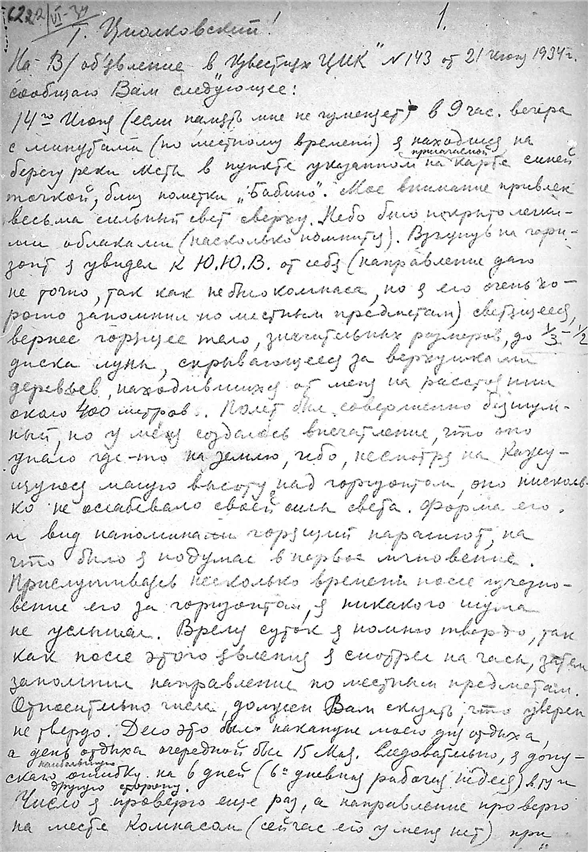 6222/VI-34
1.
Т. Циолковский!
На В/ об'явление в „Известиях ЦИК" N 143 от 21 Июня 1934 г.
сообщаю Вам следующее:
14го Июня (если память мне не изменяет) в 9 час. вечера
с минутами (по местному времени) я находился на
берегу реки Мста в пункте указанном на прилагаемой карте синей
точкой, близ пометки „Бабино". Мое внимание привлек
весьма сильный свет сверху. Небо было покрыто легки-
ми облаками (насколько помню). Взглянув на гори-
зонт я увидел к Ю.Ю.В. от себя (направление даю
не точно, так как не было компаса, но я его очень хо-
рошо запомнил по местным предметам) светящееся,
вернее горящее тело, значительных размеров, до 1/3 - 1/2
диска луны, скрывающееся за верхушками
деревьев, находившихся от меня на расстоянии
около 400 метров. Полет был совершенно бесшум-
ный, но у меня создалось впечатление, что это
упало где-то на землю, ибо, несмотря на кажу-
щуюся малую высоту над горизонтом, оно нисколь-
ко не ослабевало своей силы света. Форма его
и вид напоминали горящий парашют, на
что было я подумал в первое мгновение.
Прислушиваясь несколько времени после исчезно-
вение его за горизонтом, я никакого шума
не услышал. Время суток я помню твердо, так
как после этого явления я смотрел на часы, затем
запомнил направление по местным предметам.
Относительно числа, должен Вам сказать, что уверен
не твердо. Дело это было накануне моего дня отдыха,
а день отдыха очередной был 15 Мая. Следовательно, я допу-
скаю наибольшую ошибку на 6 дней (6ти дневная рабочая неделя) в ту и
другую сторону.
Число я проверю еще раз, а направление проверю
на месте компасом (сейчас его у меня нет) при